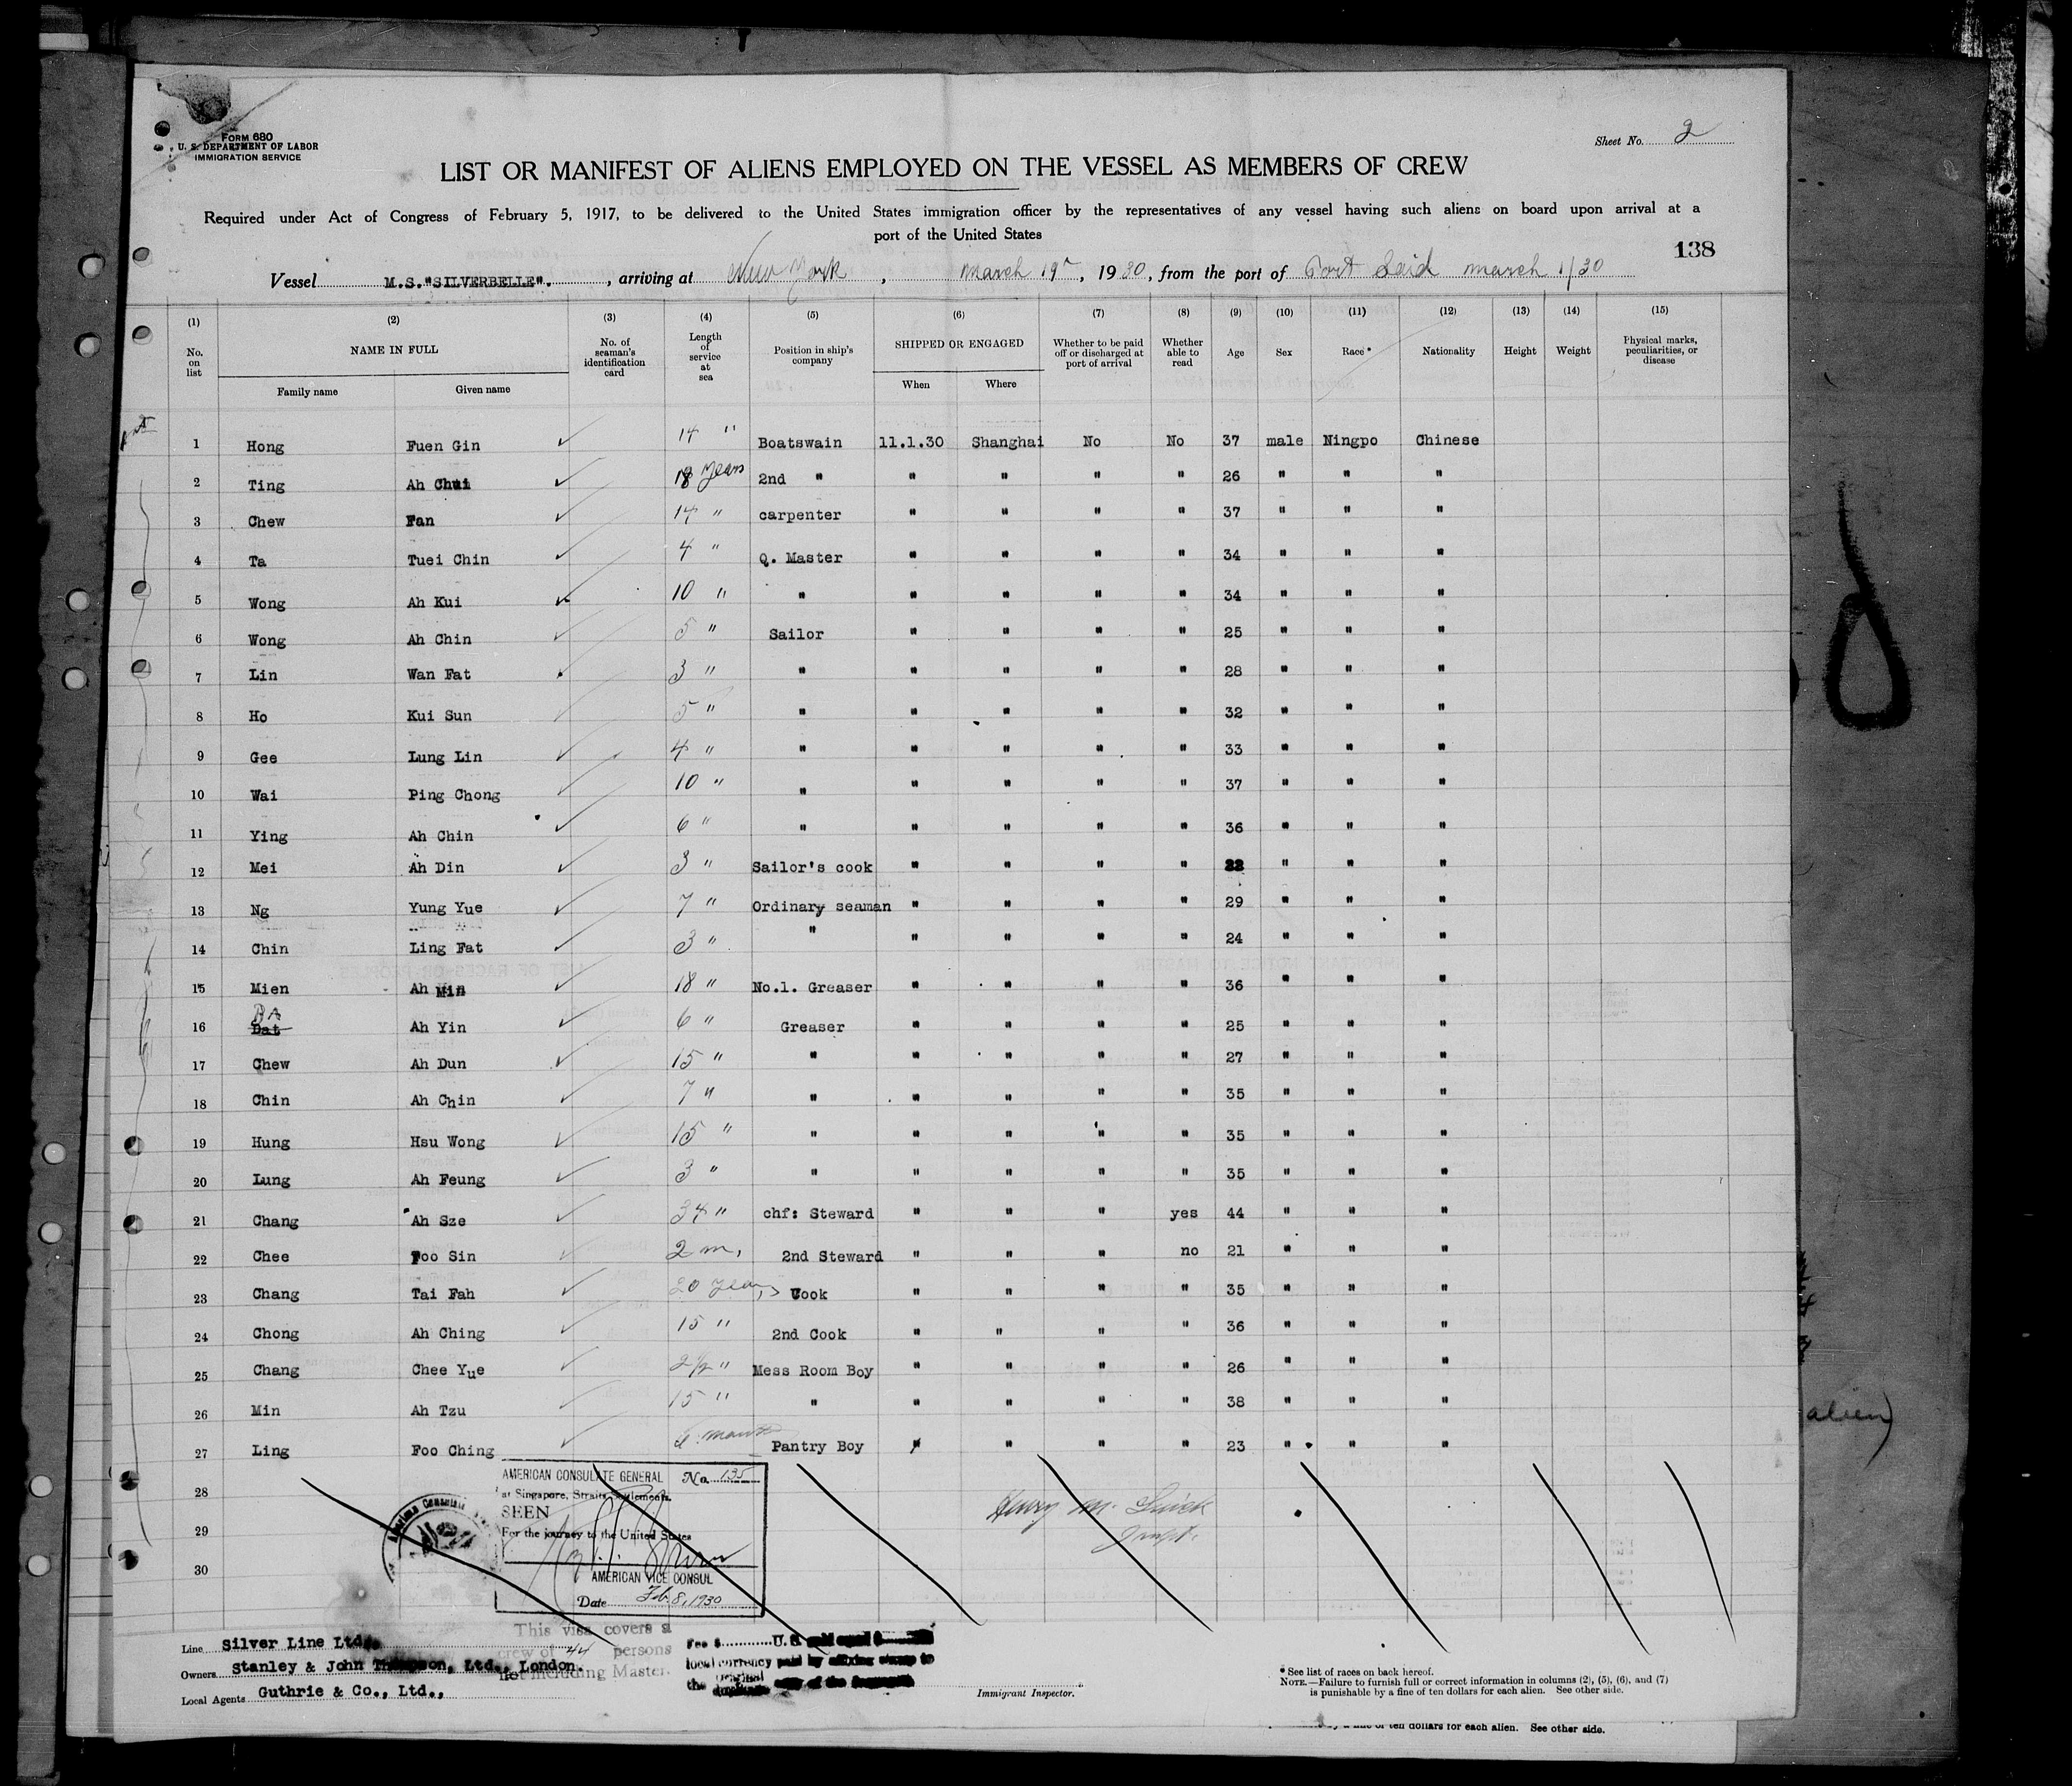 Form 680
U. S. DEPARTMENT OF LABOR
IMMIGRATION SERVICE
Sheet No. 2
LIST OR MANIFEST OF ALIENS EMPLOYED ON THE VESSEL AS MEMBERS OF CREW
Required under Act of Congress of February 5, 1917, to be delivered to the United States immigration officer by the representatives of any vessel having such aliens on board upon arrival at a
port of the United States
138
Vessel M.S."SILVERBELLE". , arriving at New York , March 19th, 1930, from the port of Port Said March 1/30
(1) (2) (3) (4) (5) (6) (7) (8) (9) (10) (11) (12) (13) (14) (15)
No. on list NAME IN FULL Family name Given name No. of seaman's identification card Length of service at sea Position in ship's company SHIPPED OR ENGAGED When Where Whether to be paid off or discharged at port of arrival Whether able to read Age Sex Race* Nationality Height Weight Physical marks, peculiarities, or disease
1 Hong Fuen Gin 14 " Boatswain 11.1.30 Shanghai No No 37 male Ningpo Chinese
2 Ting Ah Chui 18 years 2nd " " " " " 26 " " "
3 Chew Fan 14 " carpenter " " " " 37 " " "
4 Ta Tuei Chin 4 " Q. Master " " " " 34 " " "
5 Wong Ah Kui 10 " " " " " " 34 " " "
6 Wong Ah Chin 5 " Sailor " " " " 25 " " "
7 Lin Wan Fat 3 " " " " " " 28 " " "
8 Ho Kui Sun 5 " " " " " " 32 " " "
9 Gee Lung Lin 4 " " " " " " 33 " " "
10 Wai Ping Chong 10 " " " " " " 37 " " "
11 Ying Ah Chin 6 " " " " " " 36 " " "
12 Mei Ah Din 3 " Sailor's cook " " " " " " "
13 Ng Yung Yue 7 " Ordinary seaman " " " " 29 " " "
14 Chin Ling Fat 3 " " " " " " 24 " " "
15 Mien Ah Min 18 " No.1. Greaser " " " " 36 " " "
16 Dat BA Ah Yin 6 " Greaser " " " " 25 " " "
17 Chew Ah Dun 15 " " " " " " 27 " " "
18 Chin Ah Chin 7 " " " " " " 35 " " "
19 Hung Hsu Wong 15 " " " " " " 35 " " "
20 Lung Ah Feung 3 " " " " " " 35 " " "
21 Chang Ah Sze 34 " chf: Steward " " " yes 44 " " "
22 Chee Foo Sin 2 m, 2nd Steward " " " no 21 " " "
23 Chang Tai Fah 20 years Cook " " " " 35 " " "
24 Chong Ah Ching 15 " 2nd Cook " " " " 36 " " "
25 Chang Chee Yue 2½ " Mess Room Boy " " " " 26 " " "
26 Min Ah Tzu 15 " " " " " " 38 " " "
27 Ling Foo Ching 6 months Pantry Boy " " " " 23 " " "
28
29
30
AMERICAN CONSULATE GENERAL No. 135
at Singapore, Straits Settlements.
SEEN
For the journey to the United States
AMERICAN VICE CONSUL
Date Feb. 8, 1930
American Consulate
Henry M.
Inspt.
This visa covers a
crew of 44 persons
not including Master.
Line Silver Line Ltd.
Owners Stanley & John Thompson, Ltd., London.
Local Agents Guthrie & Co., Ltd.,
Fee $ U. S.
local currency paid by affixing stamp to
the original
Immigrant Inspector.
* See list of races on back hereof.
NOTE.—Failure to furnish full or correct information in columns (2), (5), (6), and (7)
is punishable by a fine of ten dollars for each alien. See other side.
ten dollars for each alien. See other side.
alien)